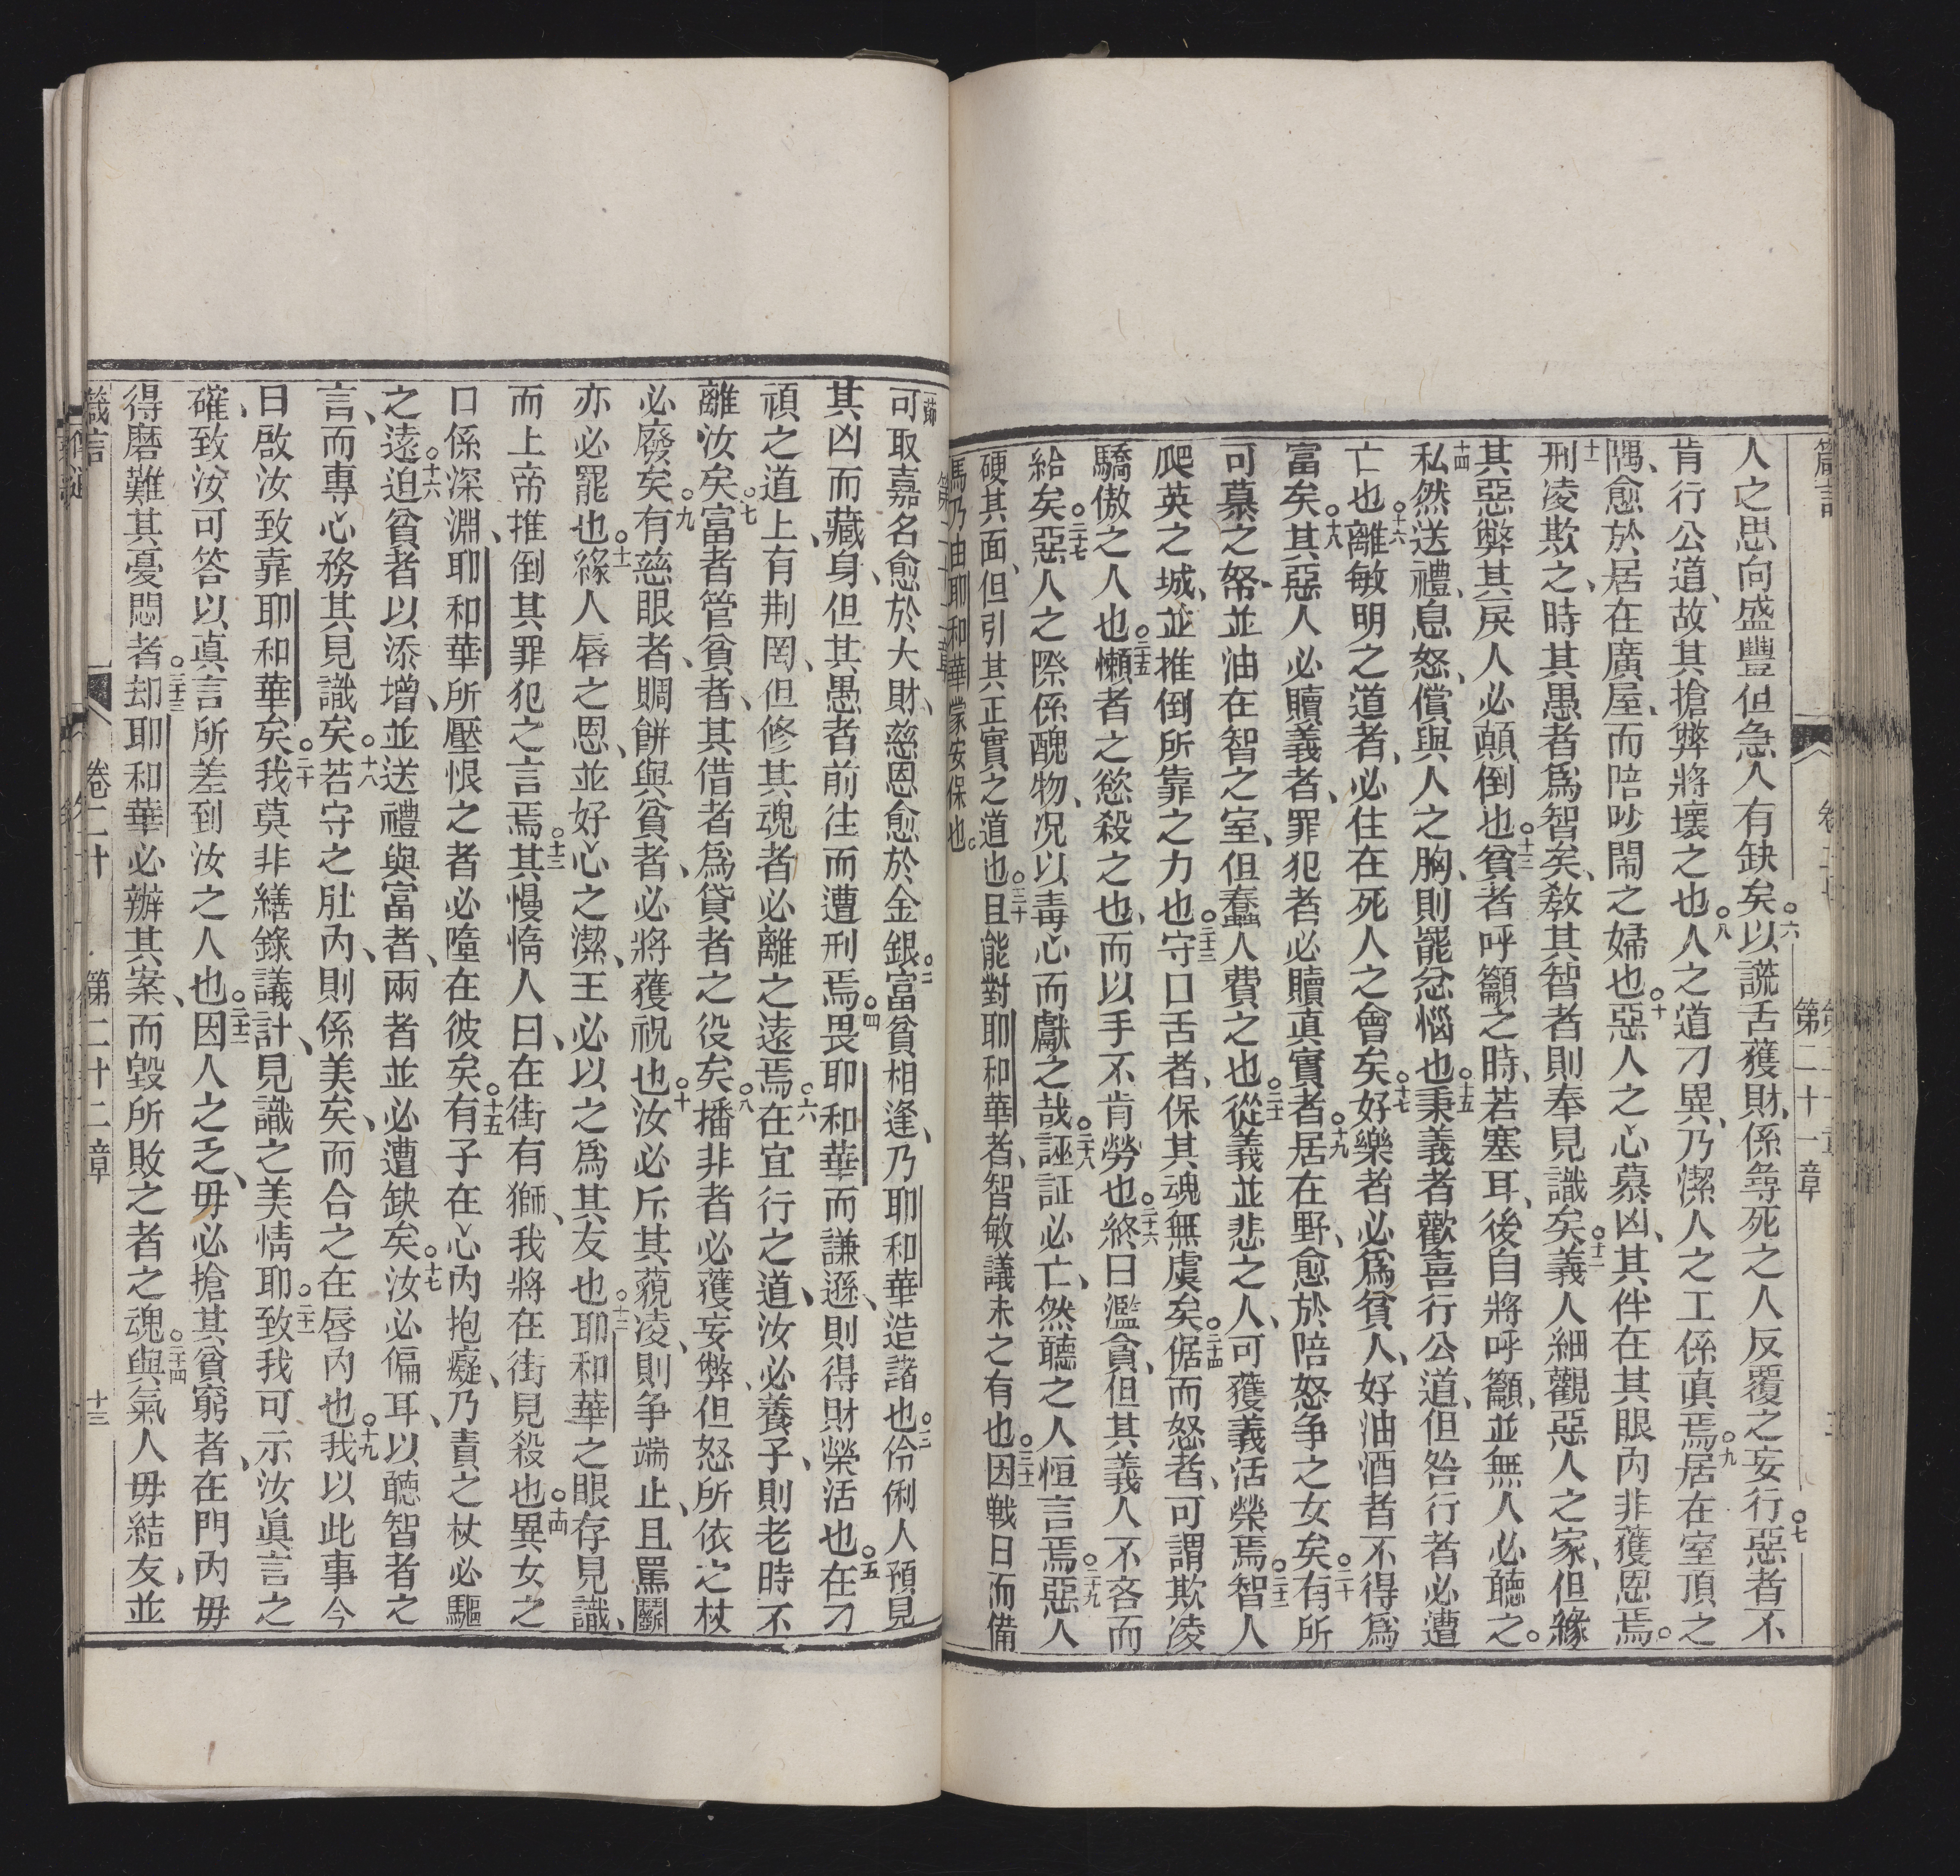 箴言
第二十一章
人之思向盛豐但急人有缺矣○六以謊舌獲財、係尋死之人反覆之妄行○七惡者不
肯行公道、故其搶弊將壞之也○八人之道刁異、乃潔人之工係眞焉○九居在室頂之
隅、愈於居在廣屋、而陪吵鬧之婦也○十惡人之心慕凶、其伴在其眼內非獲恩焉。
十一刑凌欺之、時其愚者爲智矣、敎其智者則奉見識矣○十二義人細觀惡人之家、但緣
其惡弊其戾人必顛倒也○十三貧者呼籲之時、若塞耳、後自將呼籲、並無人必聽之。
十四私然送禮、息怒、償與人之胸、則罷忿惱也○十五秉義者歡喜行公道、但咎行者必遭
亡也○十六離敏明之道者、必住在死人之會矣○十七好樂者必爲貧人、好油酒者不得爲
富矣○十八其惡人必贖義者、罪犯者必贖眞實者○十九居在野、愈於陪怒争之女矣○二十有所
可慕之帑並油在智之室、但蠢人費之也○二十一從義並悲之人、可獲義活榮焉○二十二智人
爬英之城、並推倒所靠之力也○二十三守口舌者、保其魂無虞矣○二十四倨而怒者、可謂欺凌
驕傲之人也○二十五懶者之慾殺之也、而以手不肯勞也○二十六終日濫貪、但其義人不吝而
給矣○二十七惡人之際係醜物、况以毒心而獻之哉○二十八誣証必亡、然聽之人恒言焉○二十九惡人
硬其面、但引其正實之道也○三十且能對耶和華者、智敏議未之有也○三十一因戰日而備
馬乃由耶和華蒙安保也。
第二十二章
一節可取嘉名愈於大財、慈恩愈於金銀○二富貧相逢、乃耶和華造諸也○三伶俐人預見
其凶而藏身、但其愚者前往而遭刑焉○四畏耶和華而謙遜、則得財榮活也○五在刁
頑之道上、有荆罔、但修其魂者必離之遠焉○六在宜行之道、汝必養子、則老時不
離汝矣○七富者管貧者、其借者爲貸者之役矣○八播非者必獲妄弊、但怒所依之杖
必廢矣○九有慈眼者、賙餅與貧者、必將獲祝也○十汝必斥其藐凌、則争端止、且罵鬭
亦必罷也○十一緣人唇之恩、並好心之潔、王必以之爲其友也○十二耶和華之眼存見識、
而上帝推倒其罪犯之言焉○十三其慢惰人曰、在街有獅、我將在街見殺也○十四異女之
口係深淵、耶和華所壓恨之者必墮在彼矣○十五有子在心內抱癡、乃責之杖必驅
之遠○十六迫貧者以添增、並送禮與富者、兩者並必遭缺矣○十七汝必偏耳、以聽智者之
言、而專心務其見識矣○十八若守之肚內、則係美矣、而合之在唇內也○十九我以此事今
日啟汝致靠耶和華矣○二十我莫非繕錄議計、見識之美情耶○二十一致我可示汝眞言之
確、致汝可答以眞言所差到汝之人也○二十二因人之乏、毋必搶其貧窮者、在門內毋
得磨難其憂悶者○二十三却耶和華必辦其案、而毀所敗之者之魂○二十四與氣人毋結友、並
箴言
卷二十
第二十二章
十三